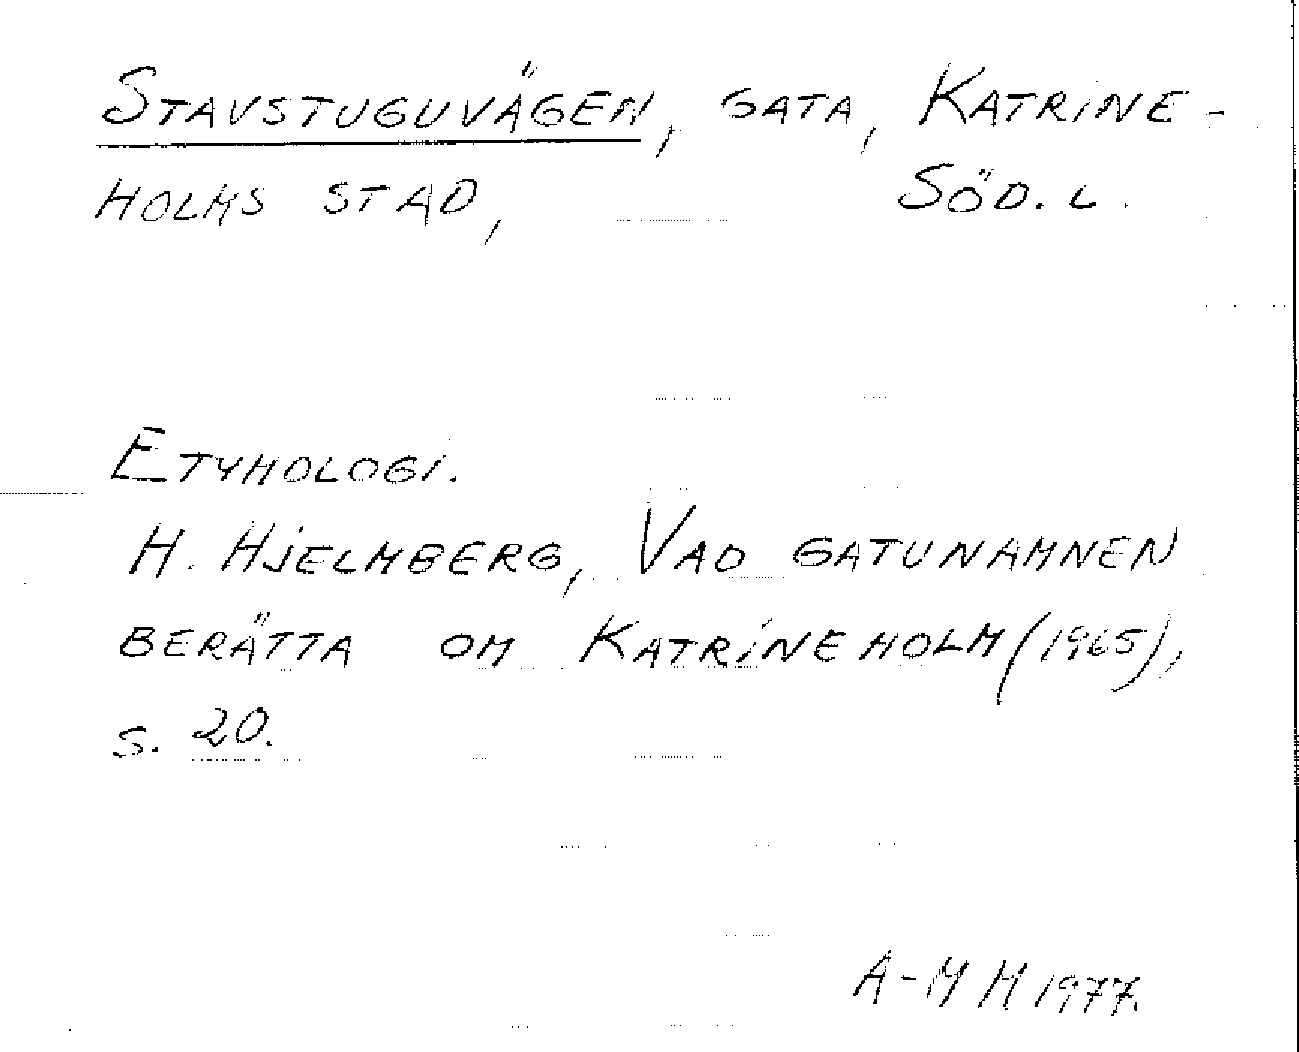 STAVSTUGUVÄGEN, GATA, KATRINE-
HOLMS STAD, SÖD. L.
ETYMOLOGI.
H. HJELMBERG, VAD GATUNAMNEN
BERÄTTA OM KATRINEHOLM (1965),
S. 20.
A-M H 1977.